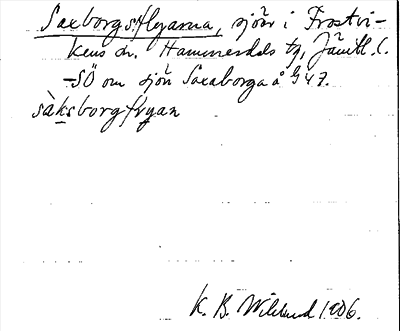 Saxborgsflyarna, sjöar i Frostvi-
kens sn. Hammerdals tg, Jämtl. l.
-SÖ om sjön Saxaborga å G 47.
sàksborgflyan
K. B. Wiklund 1906.